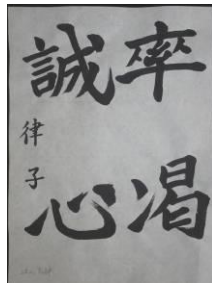 率渇
誠心
律子